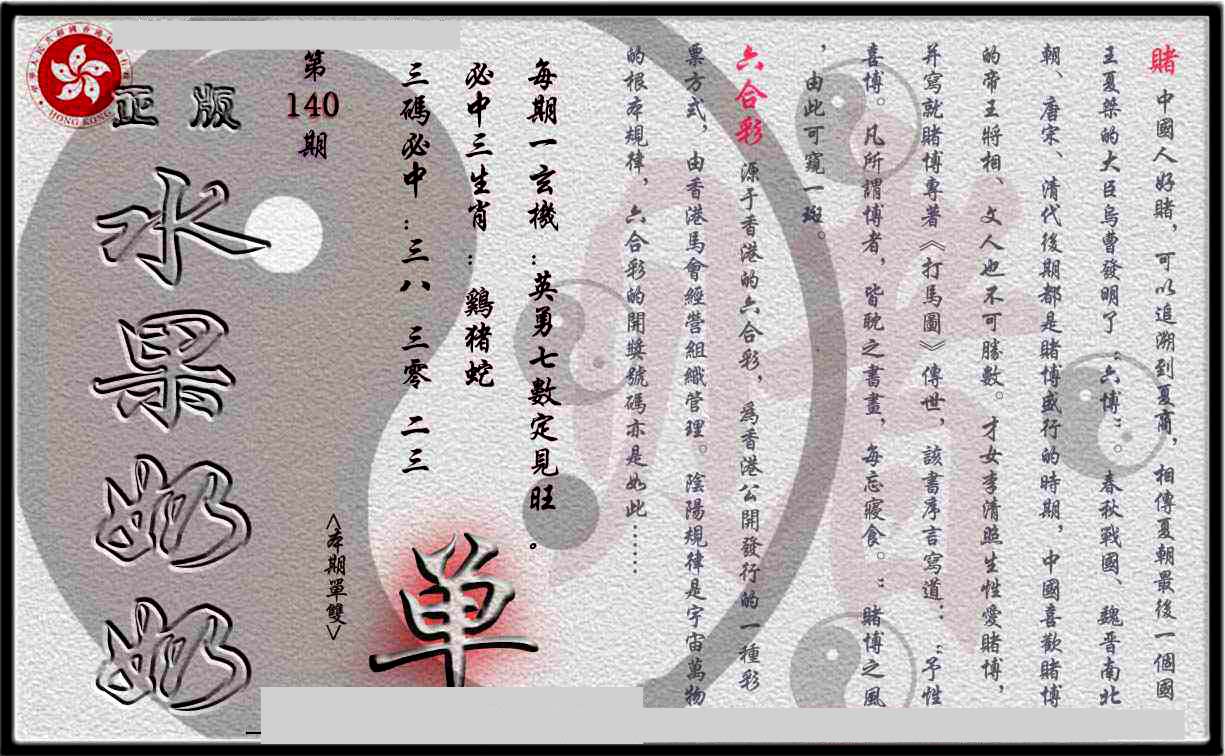 賭 中國人好賭，可以追溯到夏商，相傳夏朝最後一個國
王夏桀的大臣烏曹發明了：六博：。春秋戰國、魏晋南北
朝、唐宋、清代後期都是賭博盛行的時期，中國喜歡賭博
的帝王將相、文人也不可勝數。才女李清照生性愛賭博，
并寫就賭博專著《打馬圖》傳世，該書序言寫道：：予性
喜博。凡所謂博者，皆耽之書畫，每忘寢食。：賭博之風
，由此可窺一斑。
六合彩 源于香港的六合彩，為香港公開發行的一種彩
票方式，由香港馬會經營組織管理。陰陽規律是宇宙萬物
的根本規律，六合彩的開獎號碼亦是如此……
每期一玄機：英勇七數定見旺。
必中三生肖：鷄猪蛇
三碼必中：三八 三零 二三
單
<本期單雙>
第140期
正版
水果奶奶
HONG KONG